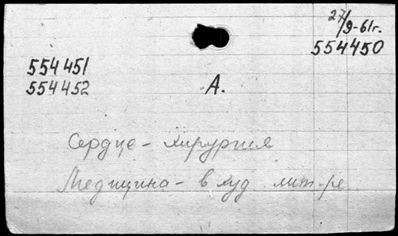 27/9-61г.
554450
554451
554452
А.
Сердце - хирургия
Медицина - в худ. лит-ре